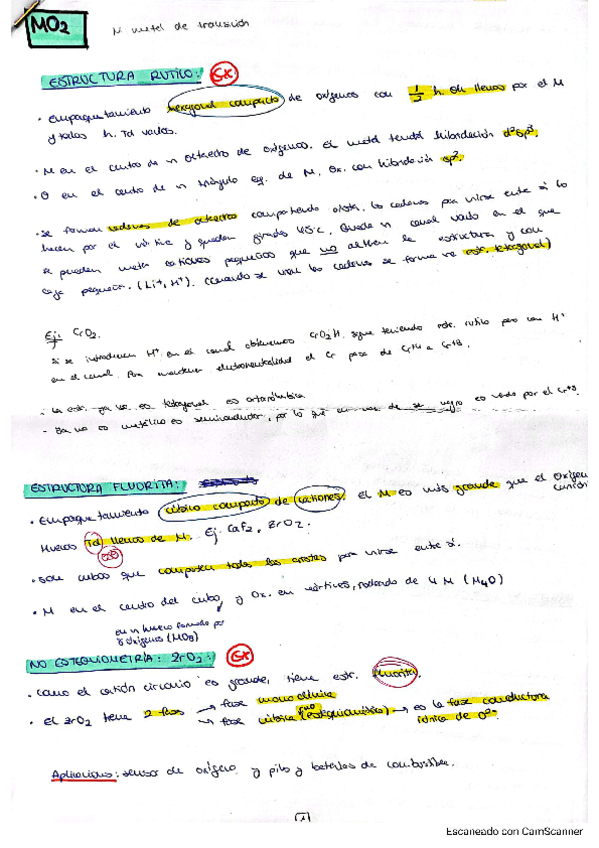 MO2 M metal de transición
ESTRUCTURA RUTILO: 6x
• Empaquetamiento hexagonal compacto de oxígenos con 1/2 h. Oh llenos por el M
y todos h. Td vacíos.
• M en el centro de un octaedro de oxígenos. El metal tendrá hibridación d²sp³.
• O en el centro de un triángulo eq. de M. Ox. con hibridación sp².
• Se forman cadenas de octaedros compartiendo arista, las cadenas para unirse entre sí lo
hacen por el vértice y quedan girados 45º. Queda un canal vacío en el que
se pueden meter cationes pequeños que no alteren la estructura y con
carga pequeña. (Li+, H+). Cuando se unen las cadenas se forma una estr. tetragonal)
Ej: CrO2.
Si se introducen H+ en el canal obtenemos CrO2H, sigue teniendo estr. rutilo pero con H+
en el canal. Para mantener electroneutralidad el Cr pasa de Cr+4 a Cr+3.
- La estr. ya no es tetragonal es ortorrómbica
- Ya no es metálico es semiconductor, por lo que en vez de ser negro es verde por el Cr+3
ESTRUCTURA FLUORITA:
• Empaquetamiento cúbico compacto de cationes. El M es más grande que el oxígeno
Huecos Td llenos de M. Ej: CaF2, ZrO2.
• Son cubos que comparten todas las aristas para unirse entre sí.
• M en el centro del cubo, y Ox. en vértices, rodeado de 4 M (M4O)
en un hueco formado por
8 oxígenos (MO8)
NO ESTEQUIOMETRÍA: ZrO2: 6x
• Como el catión circonio es grande, tiene estr. fluorita.
• El ZrO2 tiene 2 fases → fase monoclínica
→ fase cúbica (no estequiométrica) → es la fase conductora
iónica de O2-
Aplicaciones: sensor de oxígeno y pilas y baterías de combustible.
1
Escaneado con CamScanner